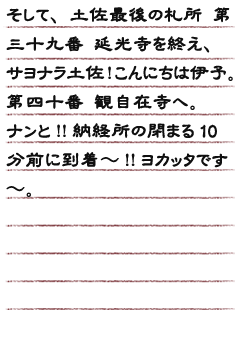 そして、 土佐最後の札所 第
三十九番 延光寺を終え、
サヨナラ土佐!こんにちは伊予。
第四十番 観自在寺へ。
ナンと!!納経所の閉まる10
分前に到着〜!!ヨカッタです
〜。